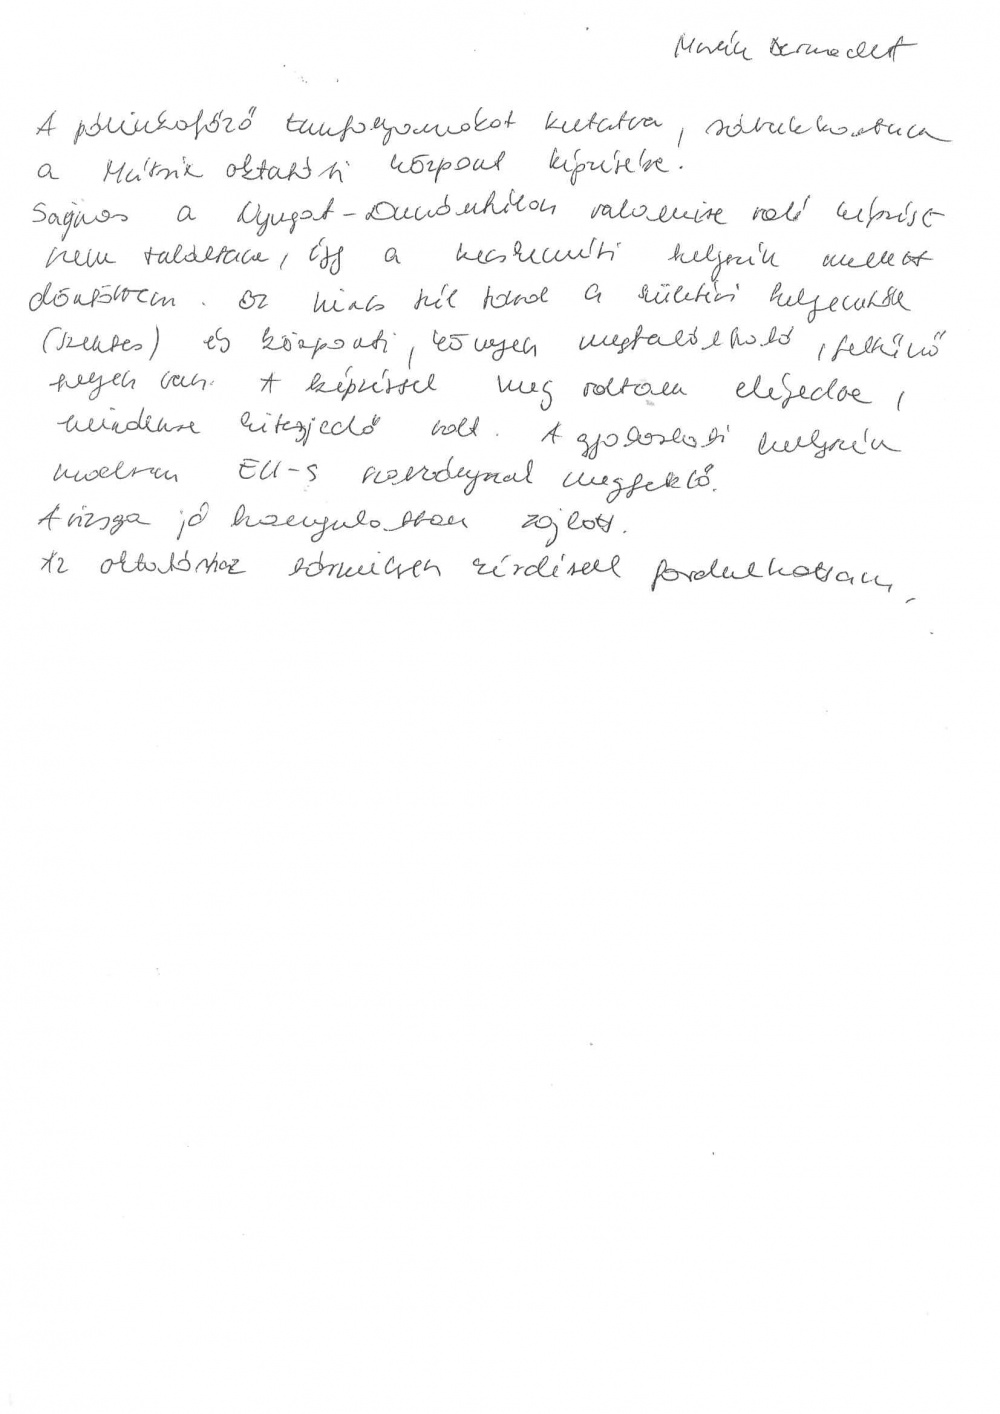 Bernadett
A pálinkafőző tanfolyamokat kutatva, rábukkantam
a Mátrix oktatási központ képzésére.
Sajnos a Nyugat-Dunántúlon valamire való képzést
nem találtam, így a kecskeméti helyszín mellett
döntöttem. Ez nincs túl távol a születési helyemtől
(Szentes) és központi, könnyen megtalálható, feltűnő
helyen van. A képzéssel meg voltam elégedve,
mindenre kiterjedő volt. A gyakorlati helyszín
modern EU-s szabványnak megfelelő.
A vizsga jó hangulatban zajlott.
Az oktatóhoz bármilyen kérdéssel fordulhattam.